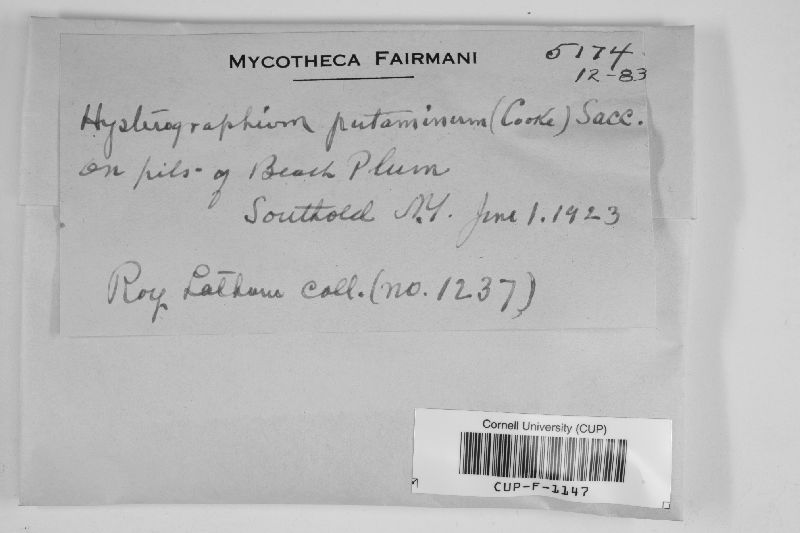 MYCOTHECA FAIRMANI
5174
12-83
Hysterographium putaminum (Cooke) Sacc.
on pits of Beach Plum
Southold N.Y. June 1. 1923
Roy Latham coll. (no. 1237)
Cornell University (CUP)
CUP-F-1147